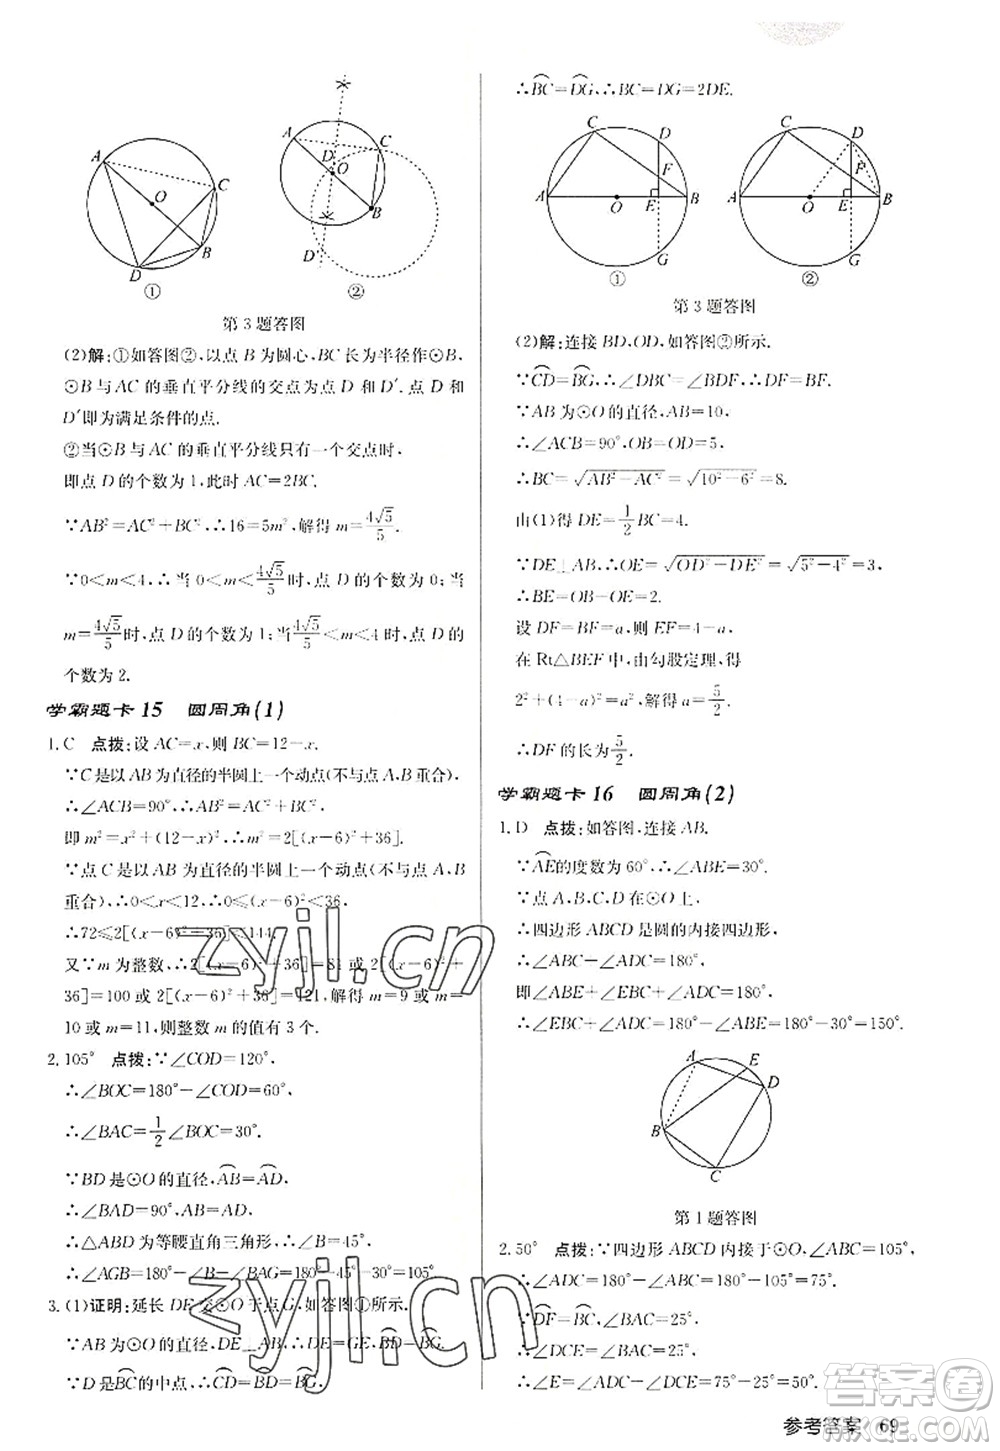 A
C
O
D
B
①
A
C
D
O
B
D′
②
第 3 题答图
(2)解:①如答图②,以点 B 为圆心,BC 长为半径作⊙B,
⊙B 与 AC 的垂直平分线的交点为点 D 和 D′. 点 D 和
D′即为满足条件的点.
②当⊙B 与 AC 的垂直平分线只有一个交点时,
即点 D 的个数为 1,此时 AC=2BC.
∵AB²=AC²+BC²,∴16=5m²,解得 m=4√5/5.
∵0<m<4,∴当 0<m<4√5/5时,点 D 的个数为 0;当
m=4√5/5时,点 D 的个数为 1;当4√5/5<m<4 时,点 D 的
个数为 2.
学霸题卡 15 圆周角(1)
1. C 点拨:设 AC=x,则 BC=12-x.
∵C 是以 AB 为直径的半圆上一个动点(不与点 A,B 重合),
∴∠ACB=90°,∴AB²=AC²+BC²,
即 m²=x²+(12-x)²,∴m²=2[(x-6)²+36].
∵点 C 是以 AB 为直径的半圆上一个动点(不与点 A,B
重合),∴0<x<12,∴0≤(x-6)²<36,
∴72≤2[(x-6)²+36]<144.
又∵m 为整数,∴2[(x-6)²+36]=81 或 2[(x-6)²+
36]=100 或 2[(x-6)²+36]=121,解得 m=9 或 m=
10 或 m=11,则整数 m 的值有 3 个.
2. 105° 点拨:∵∠COD=120°,
∴∠BOC=180°-∠COD=60°,
∴∠BAC=1/2∠BOC=30°.
∵BD 是⊙O 的直径,AB=AD,
∴∠BAD=90°,AB=AD,
∴△ABD 为等腰直角三角形,∴∠B=45°,
∴∠AGB=180°-∠B-∠BAG=180°-45°-30°=105°.
3. (1)证明:延长 DE 交⊙O 于点 G,如答图①所示.
∵AB 为⊙O 的直径,DE⊥AB,∴DE=GE,BD=BG.
∵D 是BC的中点,∴CD=BD=BG,
∴BC=DG,∴BC=DG=2DE.
C
D
F
A
O
E
B
G
①
C
D
F
A
O
E
B
G
②
第 3 题答图
(2)解:连接 BD,OD,如答图②所示.
∵CD=BG,∴∠DBC=∠BDF,∴DF=BF.
∵AB 为⊙O 的直径,AB=10,
∴∠ACB=90°,OB=OD=5,
∴BC=√AB²-AC²=√10²-6²=8.
由(1)得 DE=1/2BC=4.
∵DE⊥AB,∴OE=√OD²-DE²=√5²-4²=3,
∴BE=OB-OE=2.
设 DF=BF=a,则 EF=4-a.
在 Rt△BEF 中,由勾股定理,得
2²+(4-a)²=a²,解得 a=5/2.
∴DF 的长为5/2.
学霸题卡 16 圆周角(2)
1. D 点拨:如答图,连接 AB.
∵AE的度数为 60°,∴∠ABE=30°.
∵点 A,B,C,D 在⊙O 上,
∴四边形 ABCD 是圆的内接四边形,
∴∠ABC+∠ADC=180°,
即∠ABE+∠EBC+∠ADC=180°,
∴∠EBC+∠ADC=180°-∠ABE=180°-30°=150°.
A
E
D
B
C
第 1 题答图
2. 50° 点拨:∵四边形 ABCD 内接于⊙O,∠ABC=105°,
∴∠ADC=180°-∠ABC=180°-105°=75°.
∵DF=BC,∴∠DCE=∠BAC=25°,
∴∠E=∠ADC-∠DCE=75°-25°=50°.
参考答案 69
zyjl.cn
zyjl.cn
答案圈